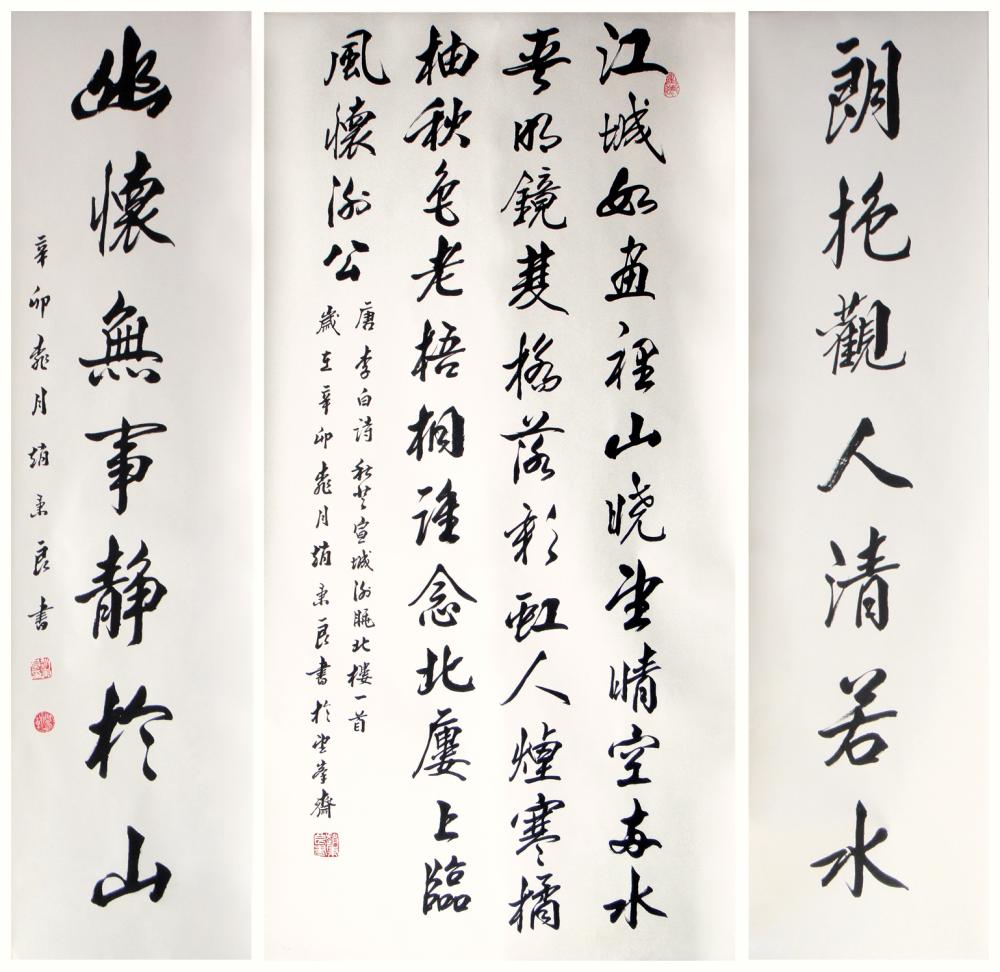 朗抱觀人清若水
江城如畫裡山曉望晴空兩水
夾明鏡雙橋落彩虹人煙寒橘
柚秋色老梧桐誰念北廔上臨
風懷謝公
唐李白詩秋登宣城謝眺北樓一首
歲在辛卯桃月趙秉良書於望峯齋
幽懷無事靜於山
辛卯桃月趙秉良書